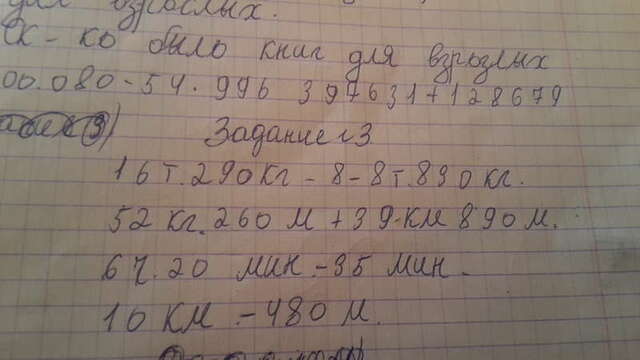 взрослых.
ск-ко было книг для взрослых
00.080-54.996 397631+128679
Задание 3
16т.290кг-8-8т.890кг.
52 км.260м+39-км 890м.
6ч.20 мин-35 мин.
10 км.-480м.